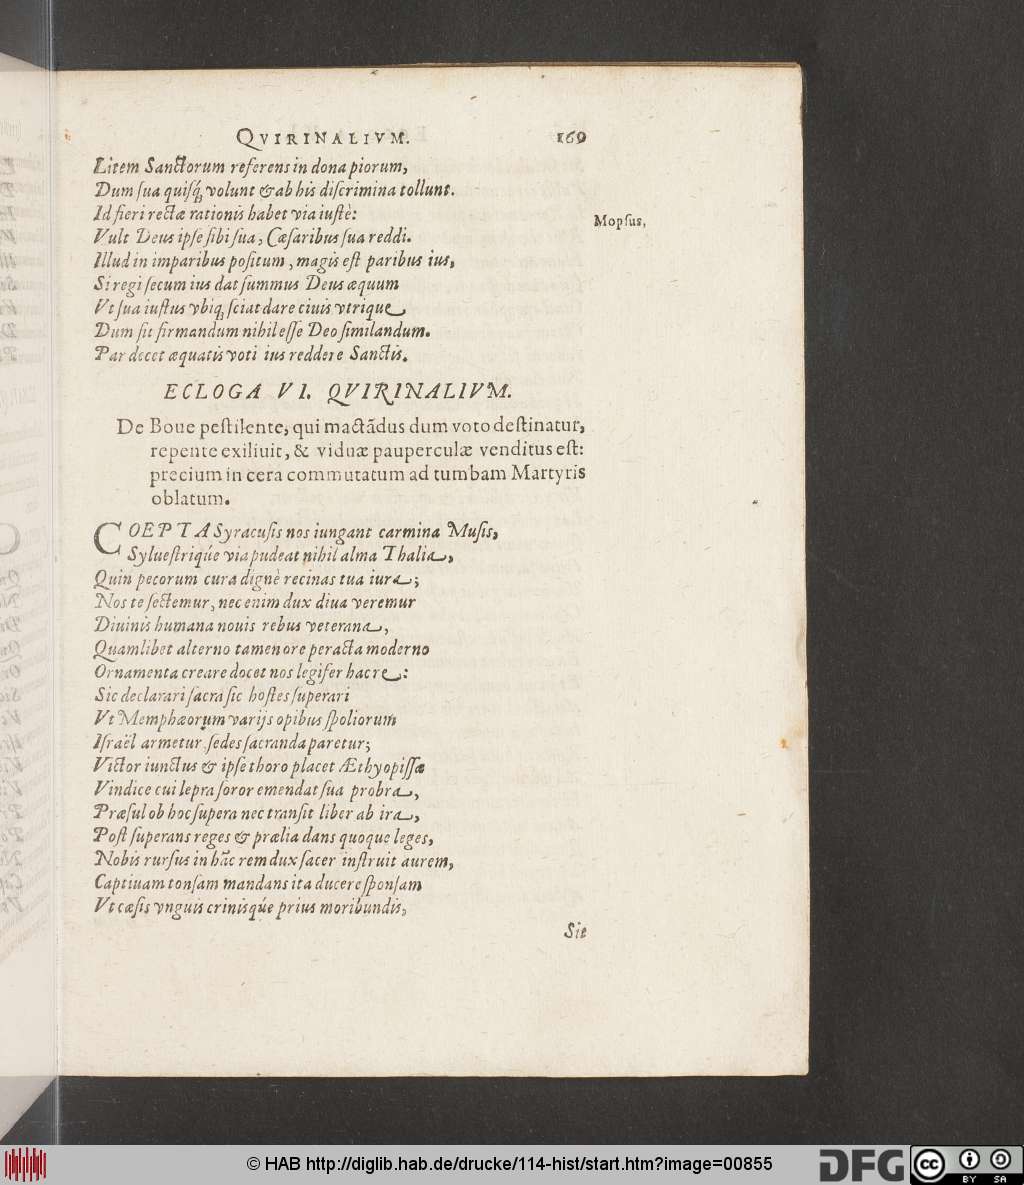 QVIRINALIVM. 169
Litem Sanctorum referens in dona piorum,
Dum sua quisq́ʒ volunt & ab his discrimina tollunt.
Id fieri rectæ rationis habet via iustè:
Mopsus,
Vult Deus ipse sibi sua, Cæsaribus sua reddi.
Illud in imparibus positum, magis est paribus ius,
Si regi secum ius dat summus Deus æquum
Vt sua iustus vbiqʒ sciat dare ciuis vtrique
Dum sit firmandum nihil esse Deo similandum.
Par decet æquatis voti ius reddere Sanctis.
ECLOGA VI. QVIRINALIVM.
De Boue pestilente, qui mactãdus dum voto destinatur,
repente exiliuit, & viduæ pauperculæ venditus est:
precium in cera commutatum ad tumbam Martyris
oblatum.
COEPTA Syracusis nos iungant carmina Musis,
Syluestriqúe via pudeat nihil alma Thalia,
Quin pecorum cura dignè recinas tua iura;
Nos te sectemur, nec enim dux diua veremur
Diuinis humana nouis rebus veterana,
Quamlibet alterno tamen ore peracta moderno
Ornamenta creare docet nos legifer hac re:
Sic declarari sacra sic hostes superari
Vt Memphæorum varijs opibus spoliorum
Israël armetur, sedes sacranda paretur;
Victor iunctus & ipse thoro placet Æthyopissæ
Vindice cui lepra soror emendat sua probra,
Præsul ob hoc supera nec transit liber ab ira,
Post superans reges & prælia dans quoque leges,
Nobis rursus in hãc rem dux sacer instruit aurem,
Captiuam tonsam mandans ita ducere sponsam
Vt cæsis vnguis crinisqúe prius moribundis,
Sic
© HAB http://diglib.hab.de/drucke/114-hist/start.htm?image=00855
DFG
cc
BY SA